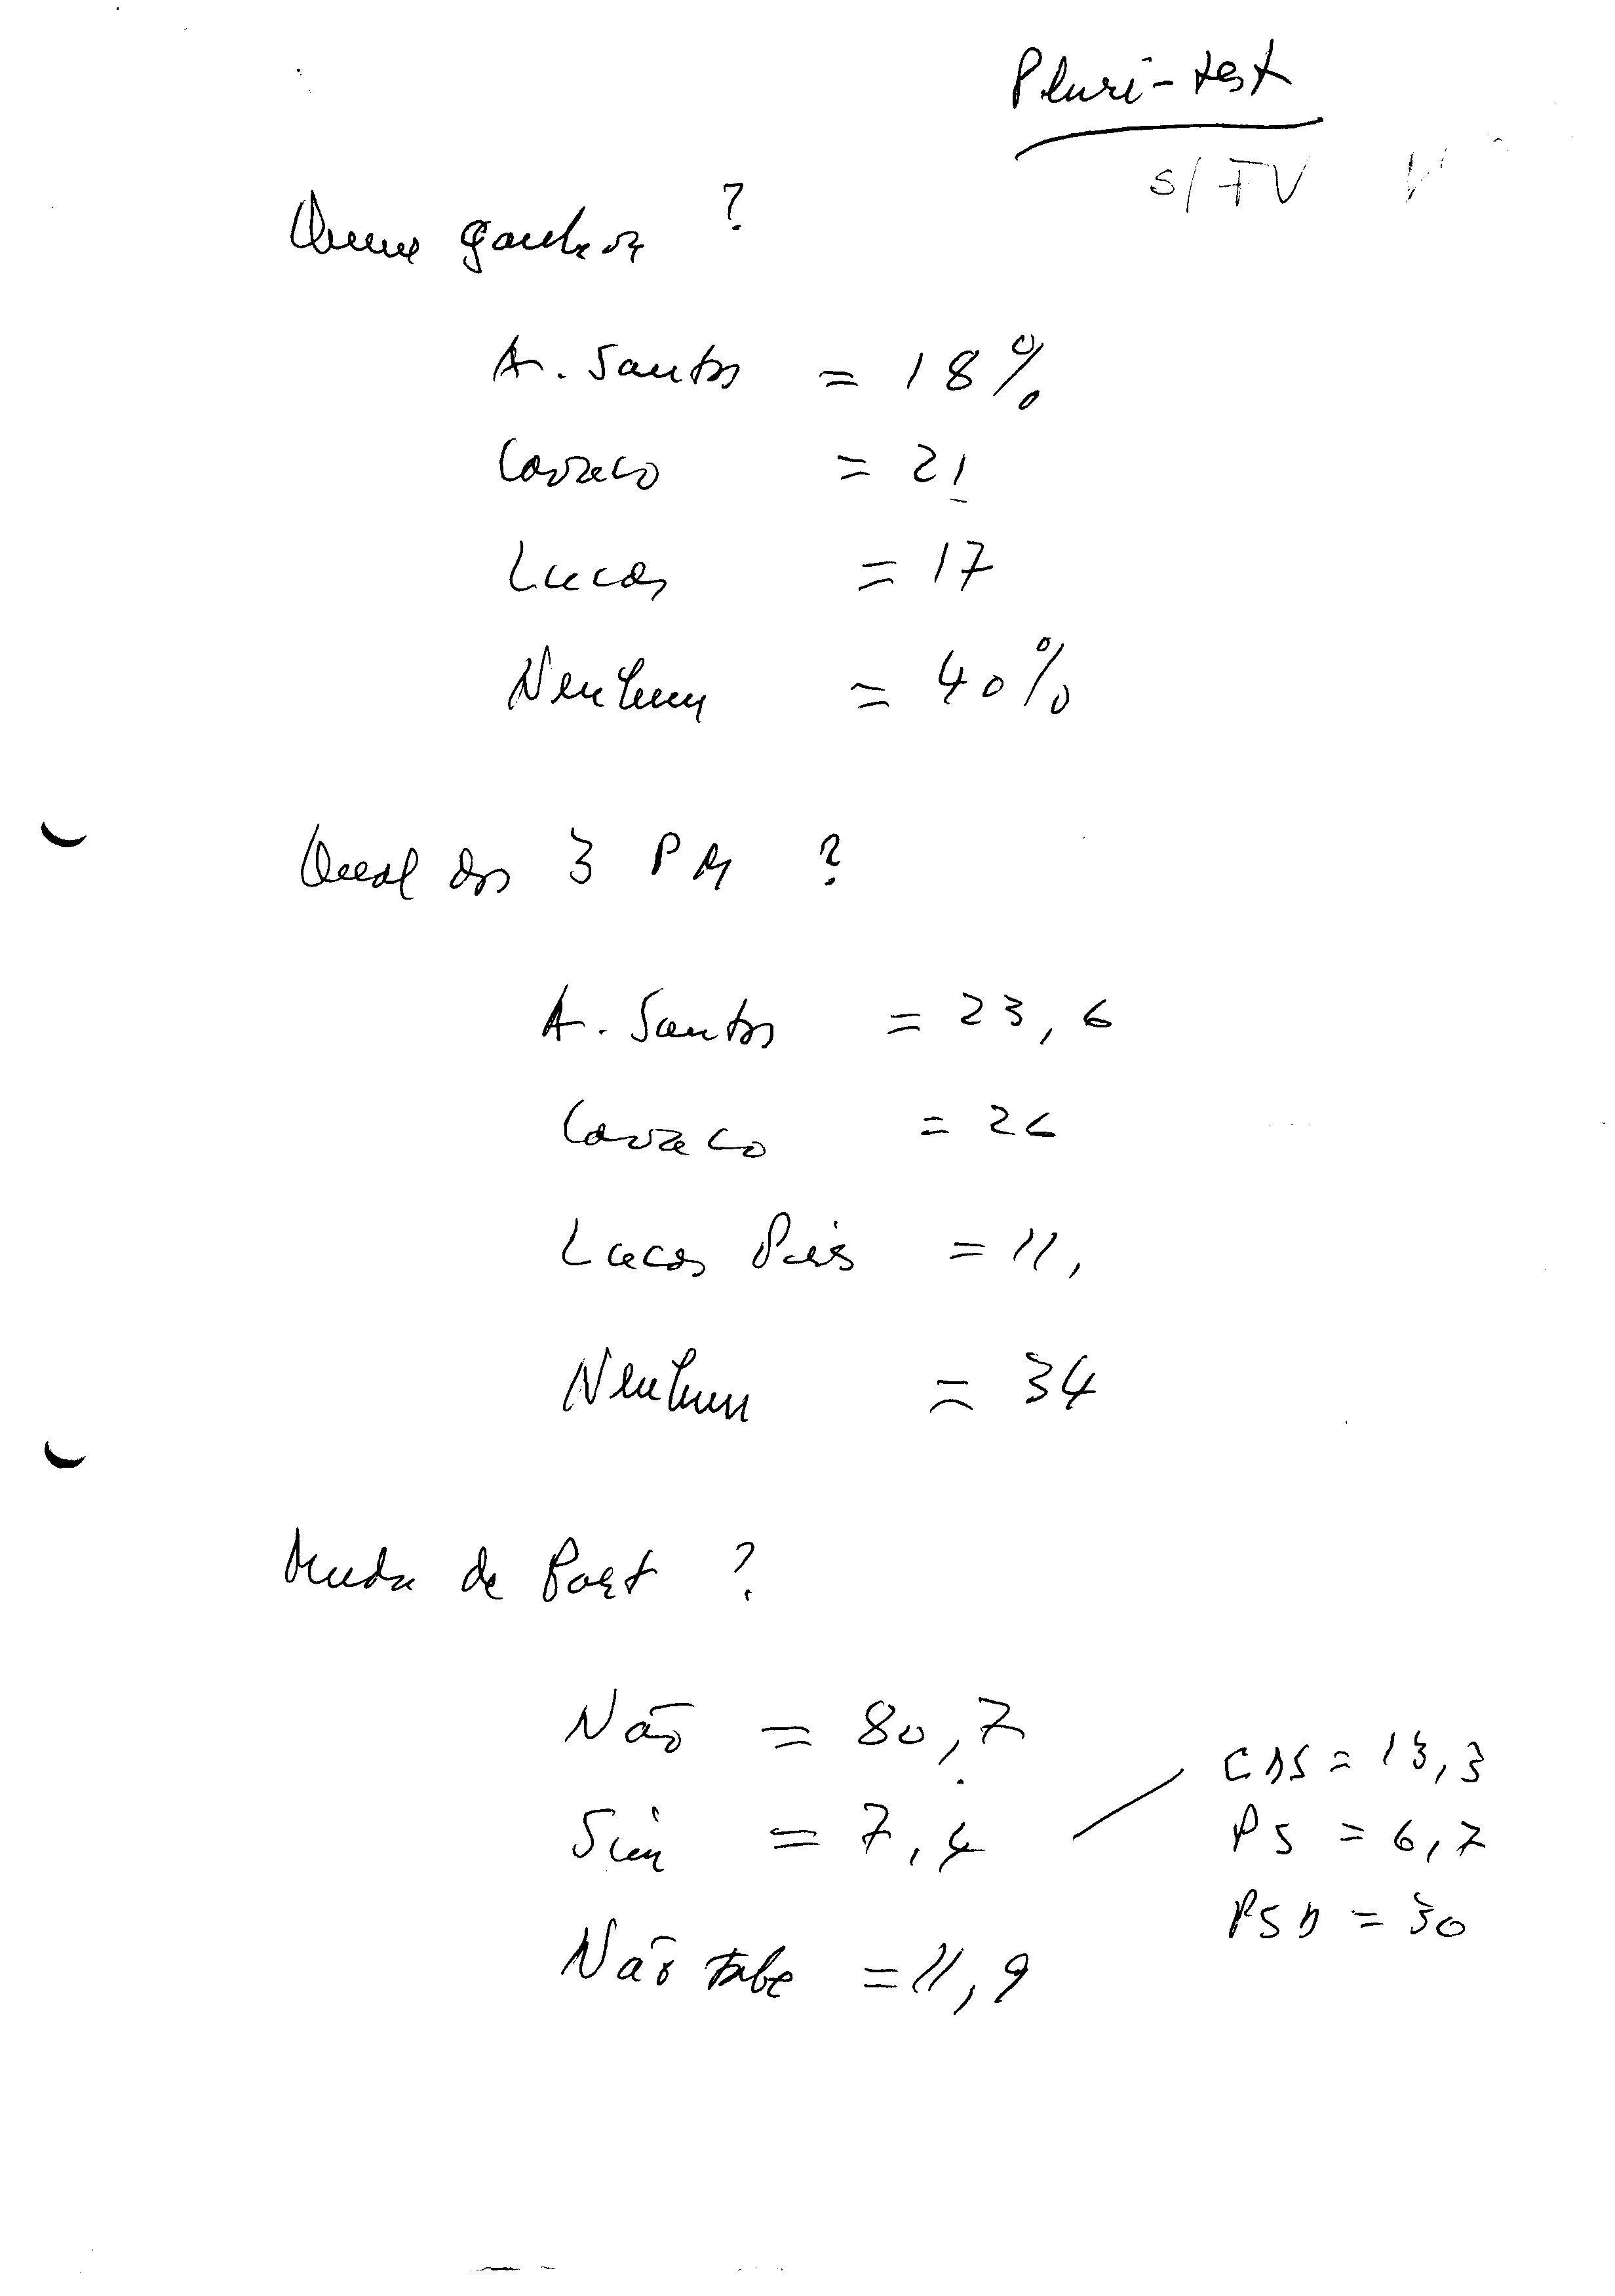 Pluri-test
s/ TV
Quem ganhou ?
A. Santos = 18%
Cavaco = 21
Lucas = 17
Nenhum = 40%
Qual dos 3 PM ?
A. Santos = 23,6
Cavaco = 26
Lucas Pires = 11,
Nenhum = 34
Muda de Part ?
Não = 80,7
Sim = 7,4
CDS = 13,3
PS = 6,7
PSD = 30
Não sabe = 11,9